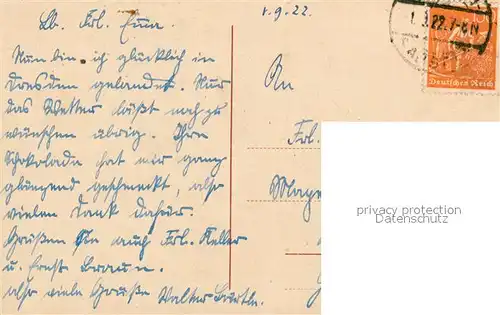 Lb. Frl. Emma.
1.9.22.
Nun bin ich glücklich in
Dresden gelandet. Nur
das Wetter läßt noch zu
wünschen übrig. Ihre
Schokolade hat mir ganz
glänzend geschmeckt, also
vielen Dank dafür.
Grüßen Sie auch Frl. Keller
u. Ernst Braun.
also viele Grüße Walter
An
Frl.
22.7-8N
150
Deutsches Reich
privacy protection
Datenschutz